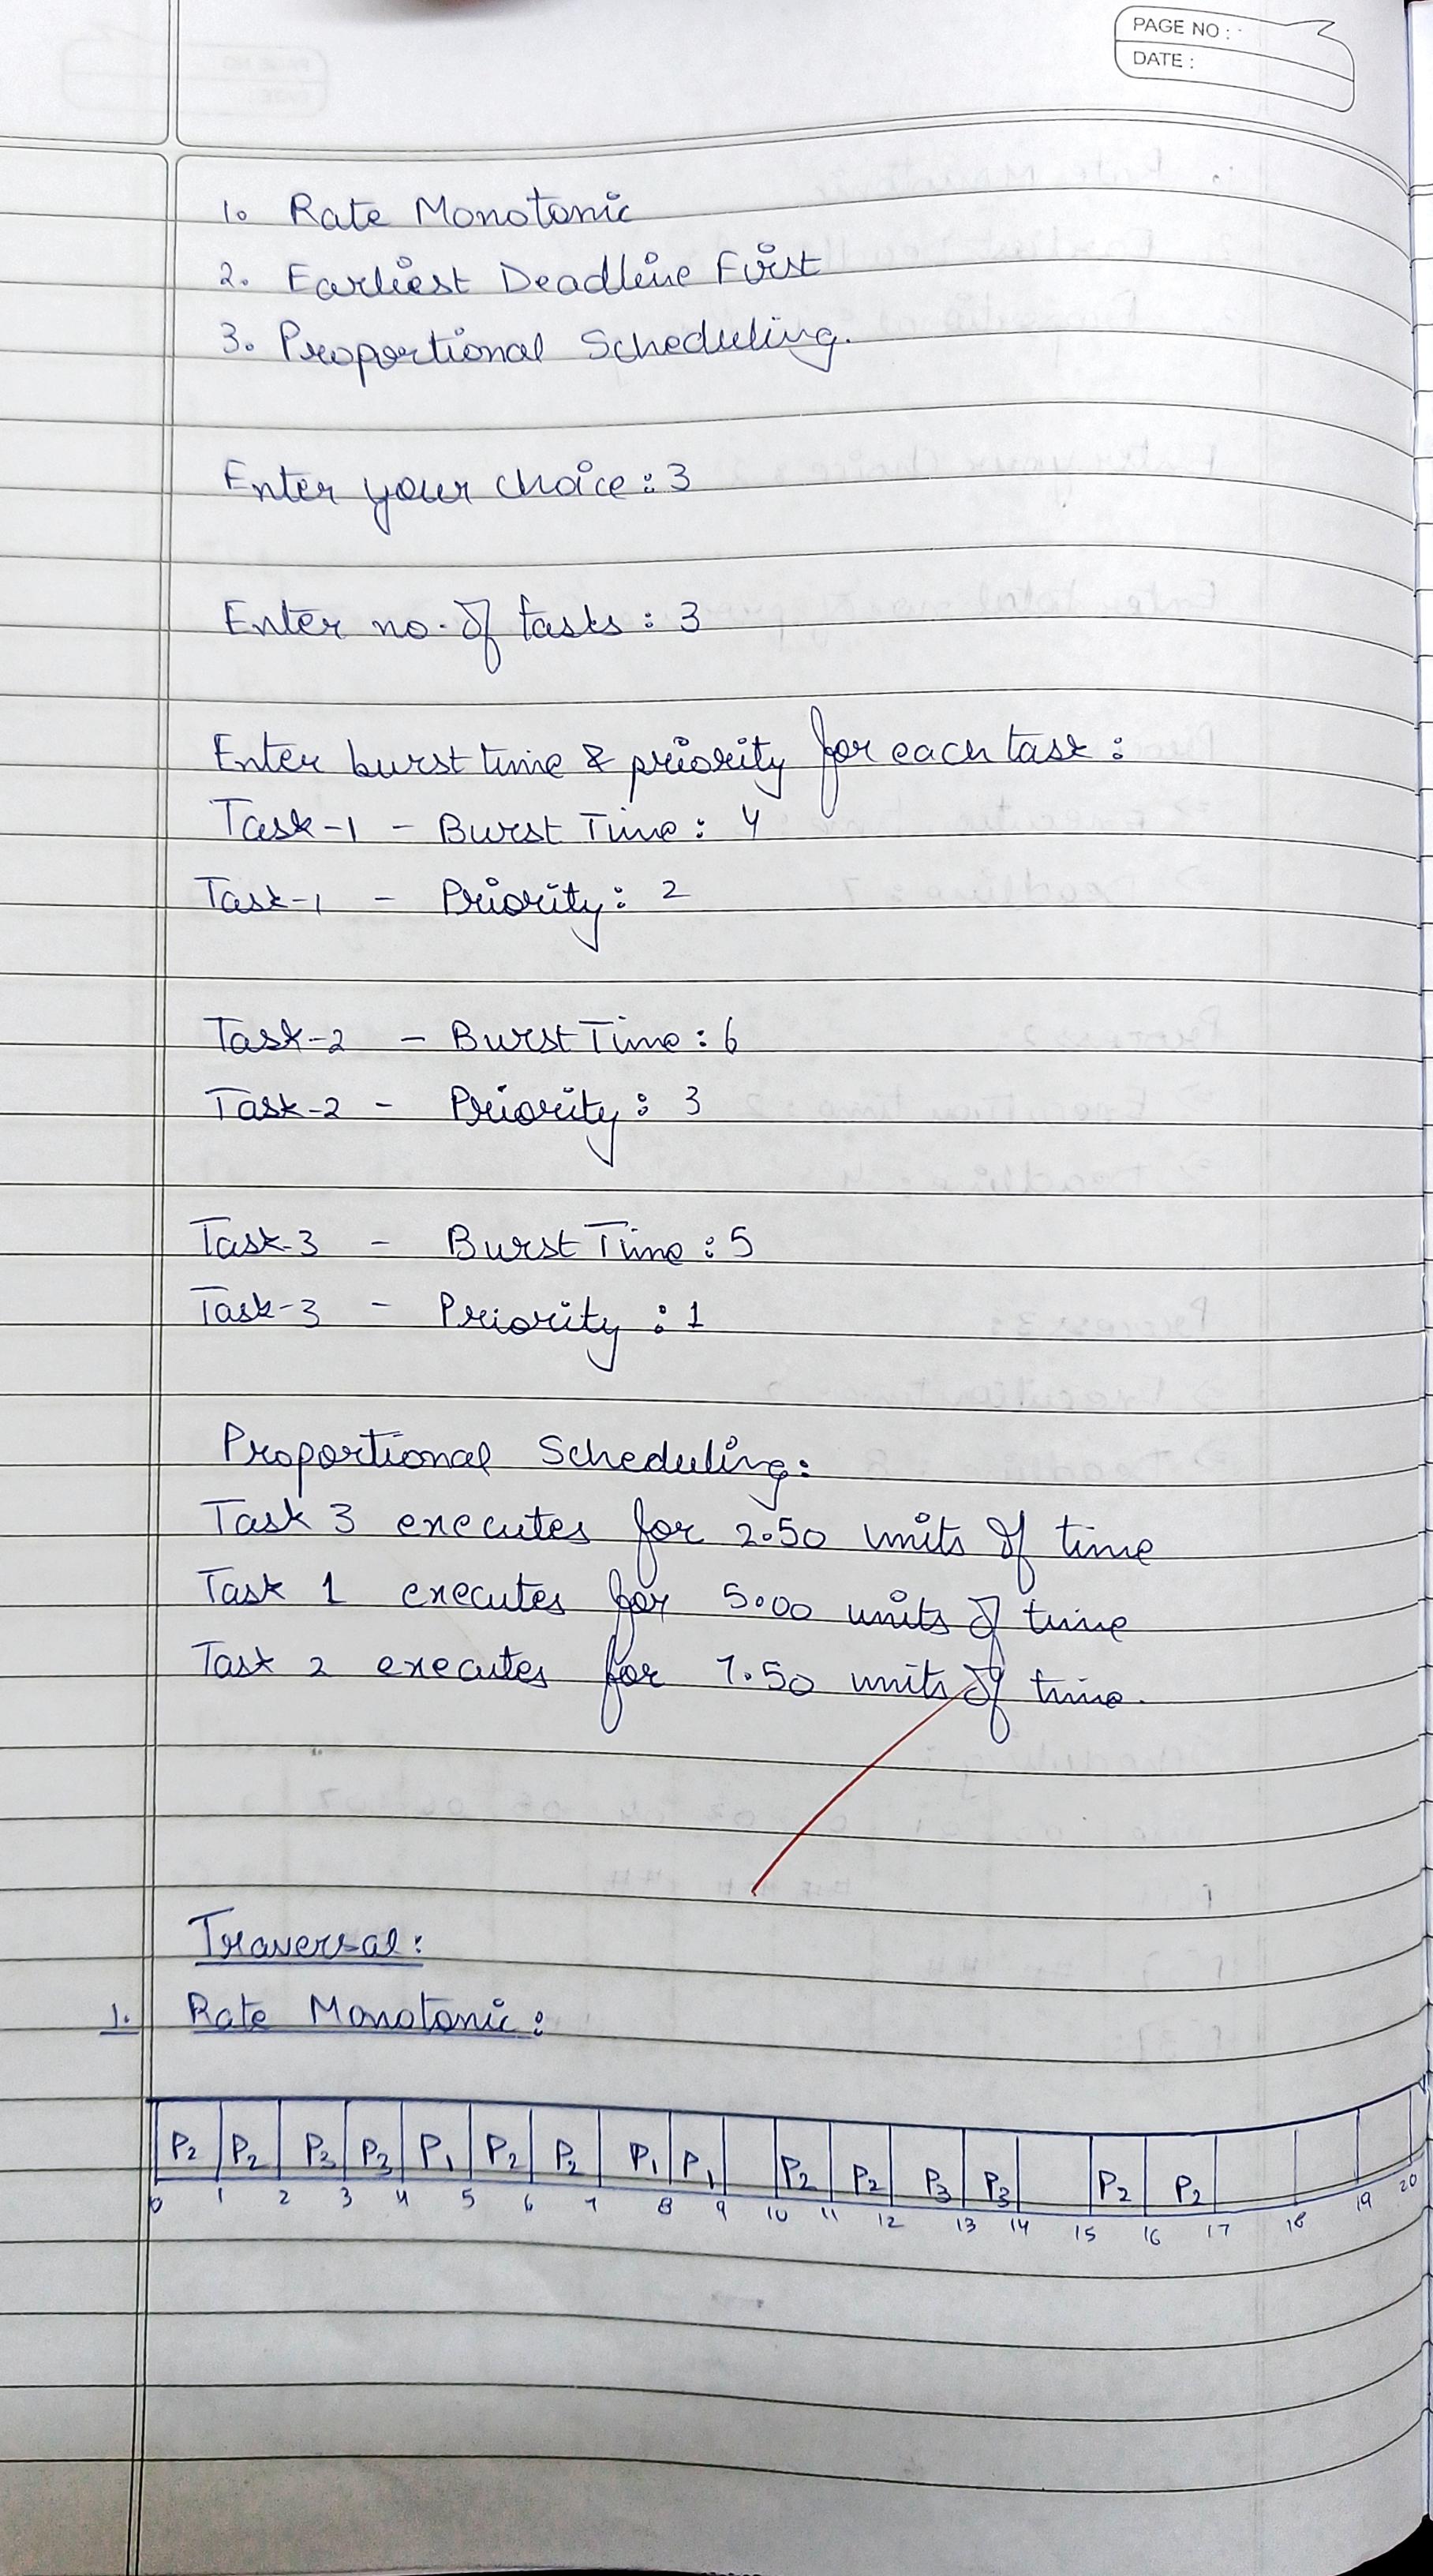 PAGE NO :
DATE :
1. Rate Monotonic
2. Earliest Deadline First
3. Proportional Scheduling.
Enter your choice : 3
Enter no. of tasks : 3
Enter burst time & priority for each task :
Task-1 - Burst Time : 4
Task-1 - Priority : 2
Task-2 - Burst Time : 6
Task-2 - Priority : 3
Task-3 - Burst Time : 5
Task-3 - Priority : 1
Proportional Scheduling:
Task 3 executes for 2.50 units of time
Task 1 executes for 5.00 units of time
Task 2 executes for 7.50 units of time.
Traversal:
1. Rate Monotonic:
P2 P2 P3 P3 P1 P2 P2 P1 P1 P2 P2 P3 P3 P2 P2
0 1 2 3 4 5 6 7 8 9 10 11 12 13 14 15 16 17 18 19 20